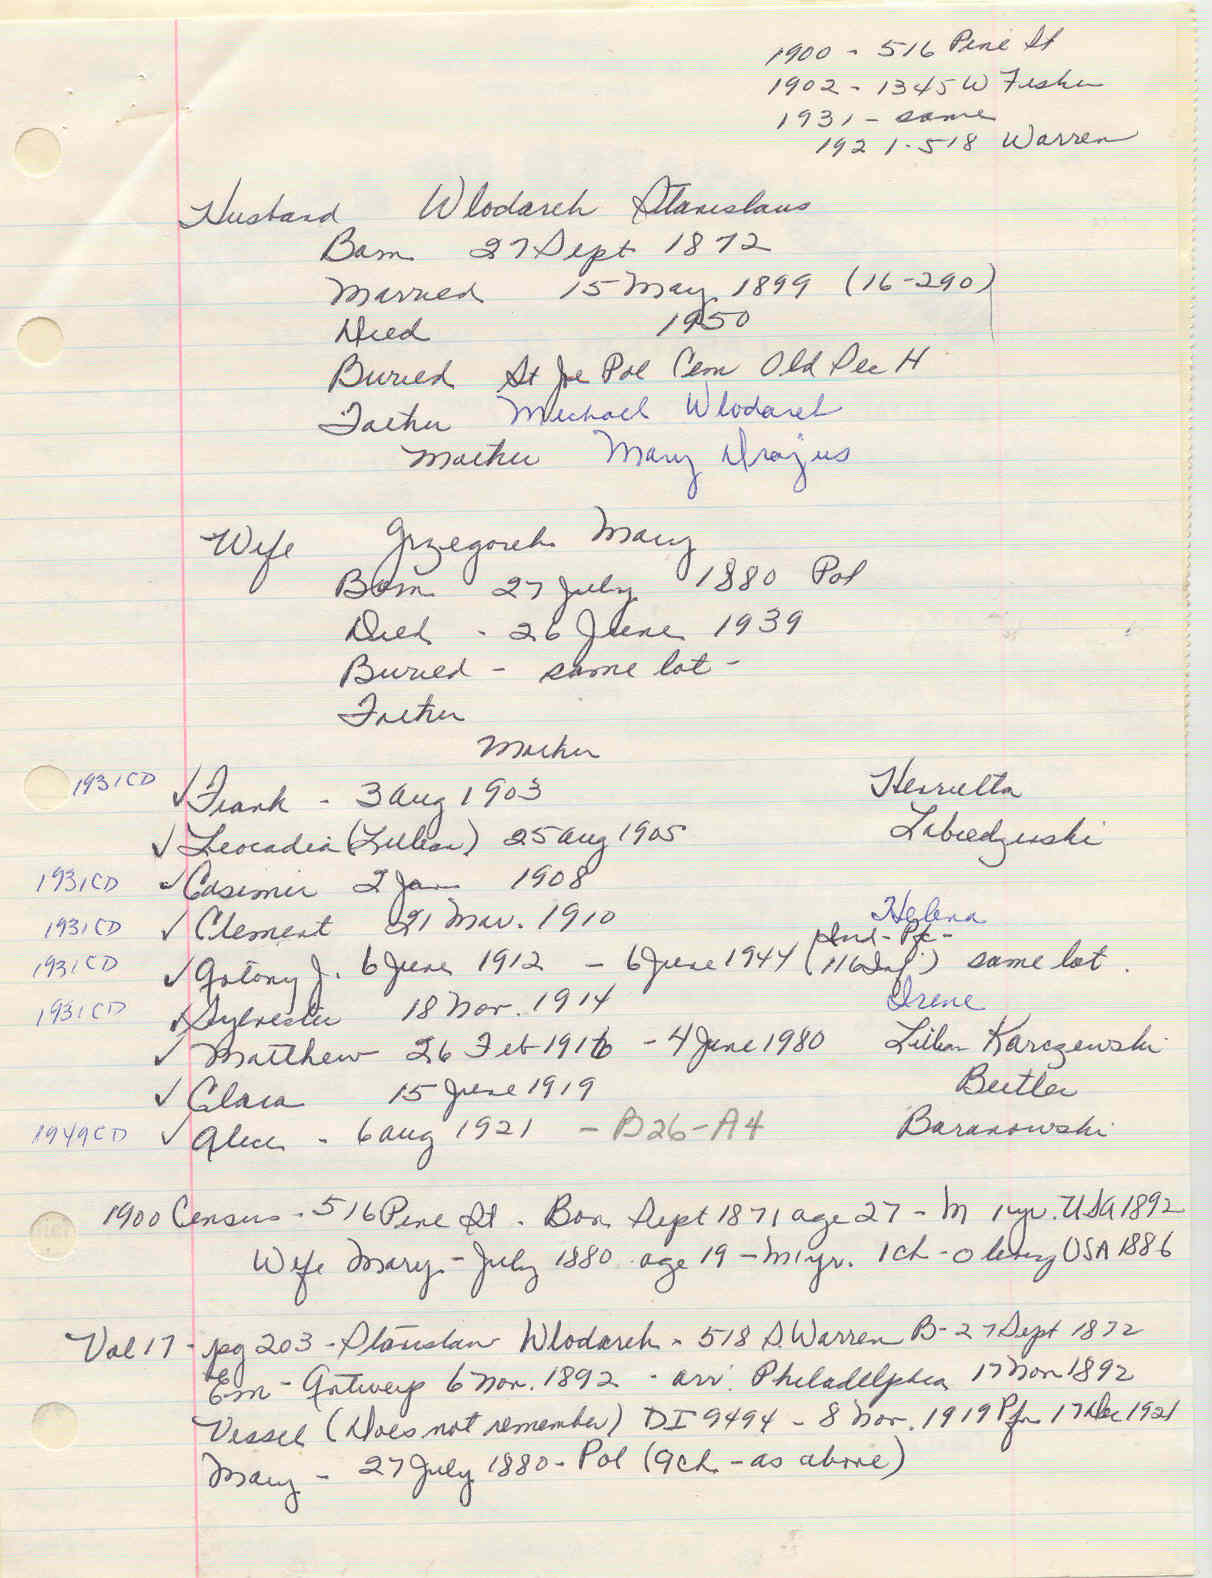 1900 - 516 Pine St
1902 - 1345 W Fisher
1931 - same
1921 - 518 Warren
Husband Wlodarek Stanislaus
Born 27 Sept 1872
Married 15 May 1899 (16-290)
Died 1950
Buried St Joe Pol Cem Old Sec H
Father Michael Wlodarek
Mother Mary
Wife Grzegorek Mary
Born 27 July 1880 Pol
Died - 26 June 1939
Buried - same lot -
Father
Mother
1931CD ✓ Frank - 3 Aug 1903 Henrietta
✓ Leocadia (Lillian) 25 Aug 1905
1931CD ✓ Casimir 2 Jan 1908
1931CD ✓ Clement 21 Mar. 1910 Helena
Pfc -
1931CD ✓ Antony J. 6 June 1912 - 6 June 1944 (116 Inf) same lot.
1931CD ✓ Sylvester 18 Nov. 1914 Irene
✓ Matthew 26 Feb 1916 - 4 June 1980 Lillian Karczewski
✓ Clara 15 June 1919 Beutler
1949CD ✓ Alice - 6 Aug 1921 - B26-A4 Baranowski
1900 Census - 516 Pine St. Born Sept 1871 age 27 - M 1 yr. USA 1892
Wife Mary - July 1880 age 19 - M 1 yr. 1 ch - 0 living USA 1886
Vol 17 - pg 203 - Stanislaw Wlodarek - 518 S. Warren B - 27 Sept 1872
Em - Antwerp 6 Nov. 1892 - arr. Philadelphia 17 Nov 1892
Vessel (Does not remember) DI 9494 - 8 Nov. 1919 17 Dec 1921
Mary - 27 July 1880 - Pol (9 ch - as above)